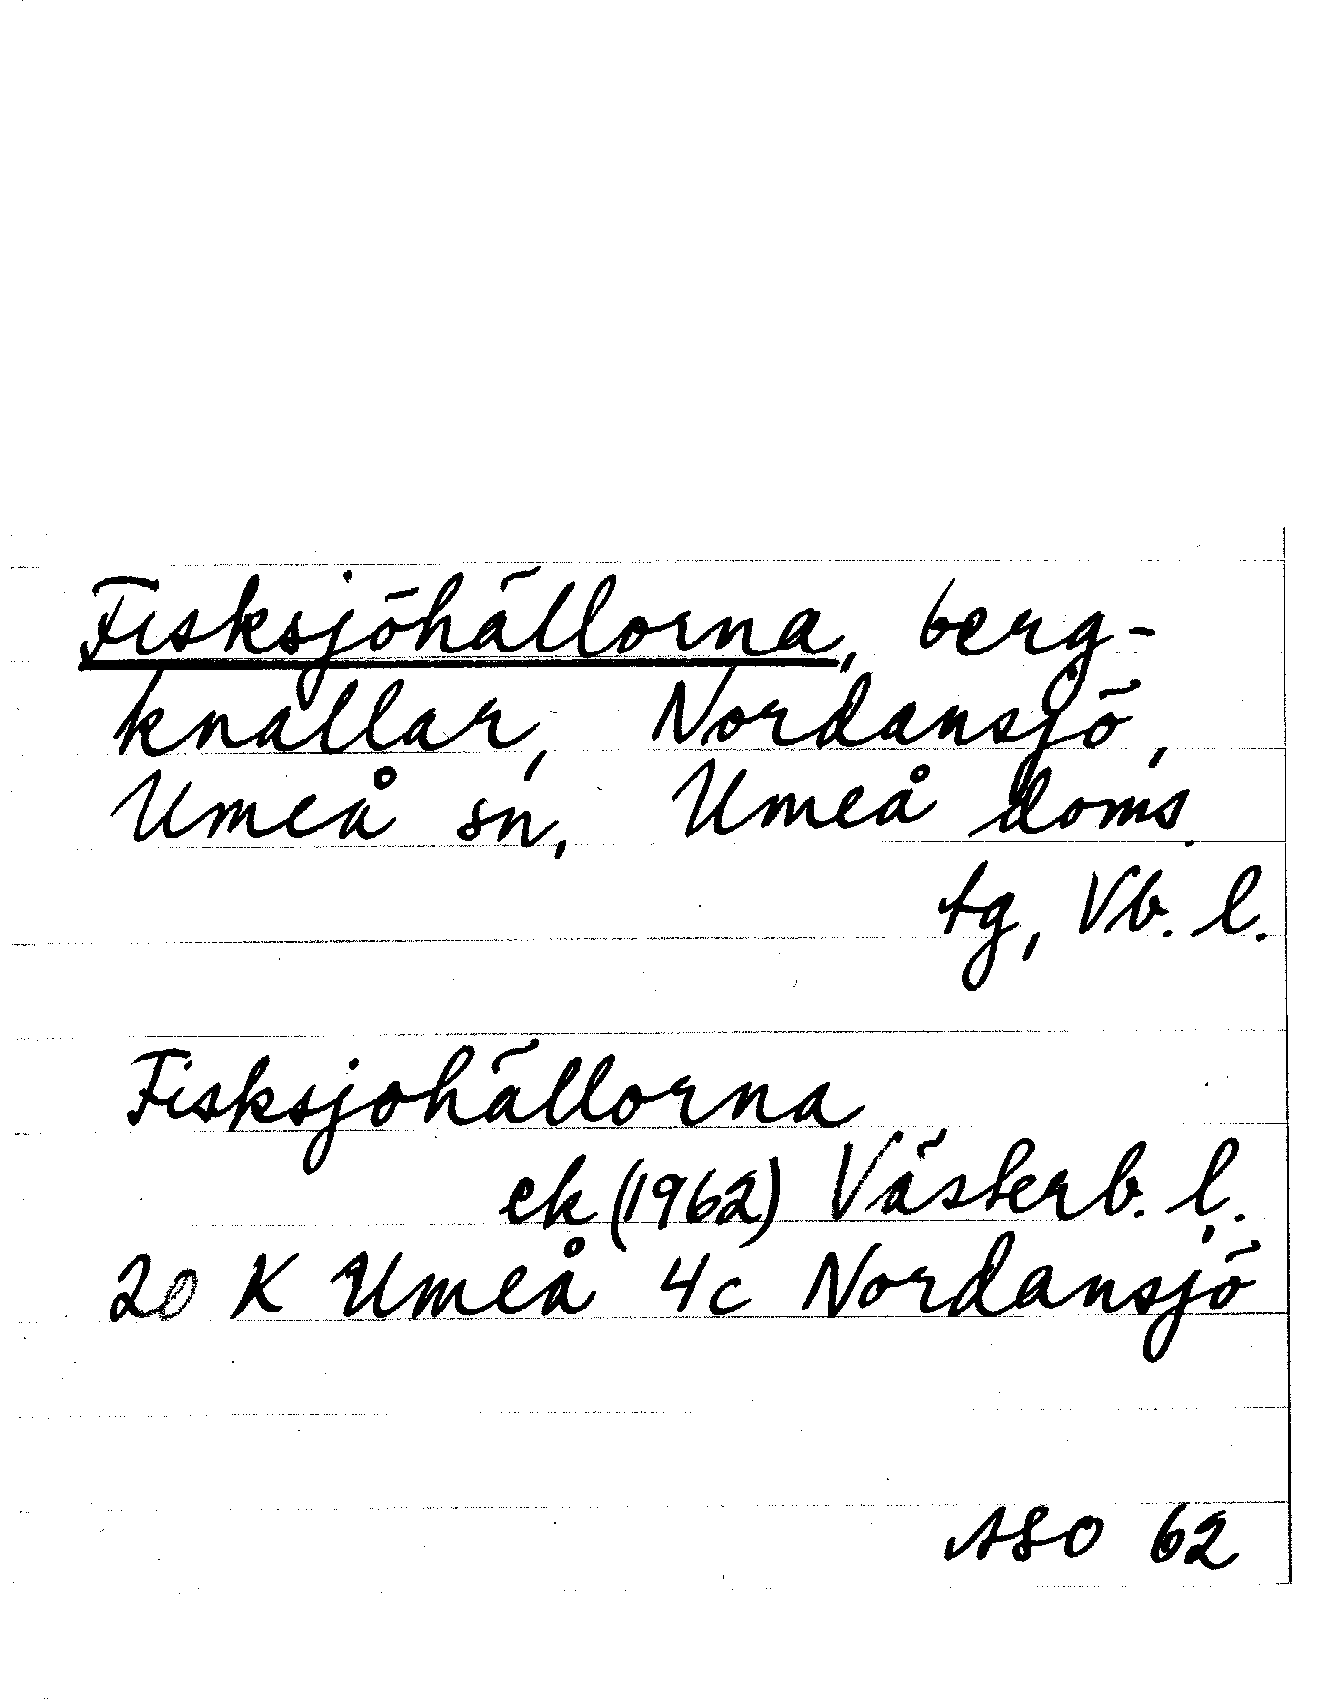 Fisksjöhällorna, berg-
knallar, Nordansjö,
Umeå sn, Umeå doms.
tg, Vb. l.
Fisksjohällorna
ek (1962) Västerb. l.
20 K Umeå 4c Nordansjö
ASO 62